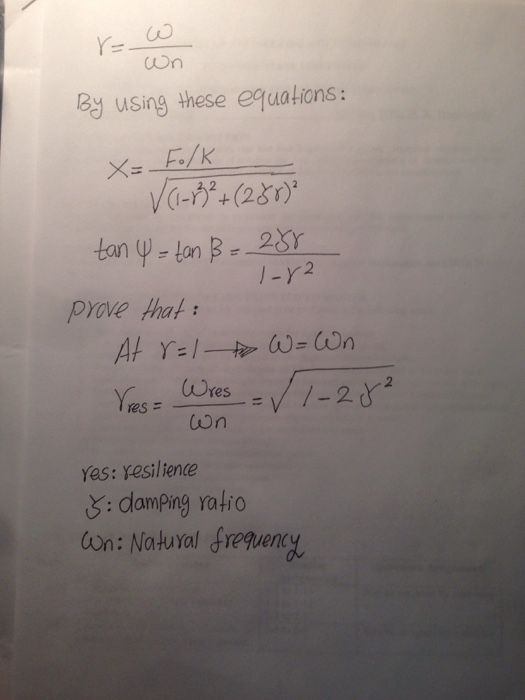 r = ω/ωn
By using these equations:
X = F₀/K / √((1-r²)² + (2ζr)²)
tan ψ = tan β = 2ζr / 1-r²
prove that:
At r=1 → ω = ωn
rres = ωres/ωn = √(1-2ζ²)
res: resilience
ζ: damping ratio
ωn: Natural frequency